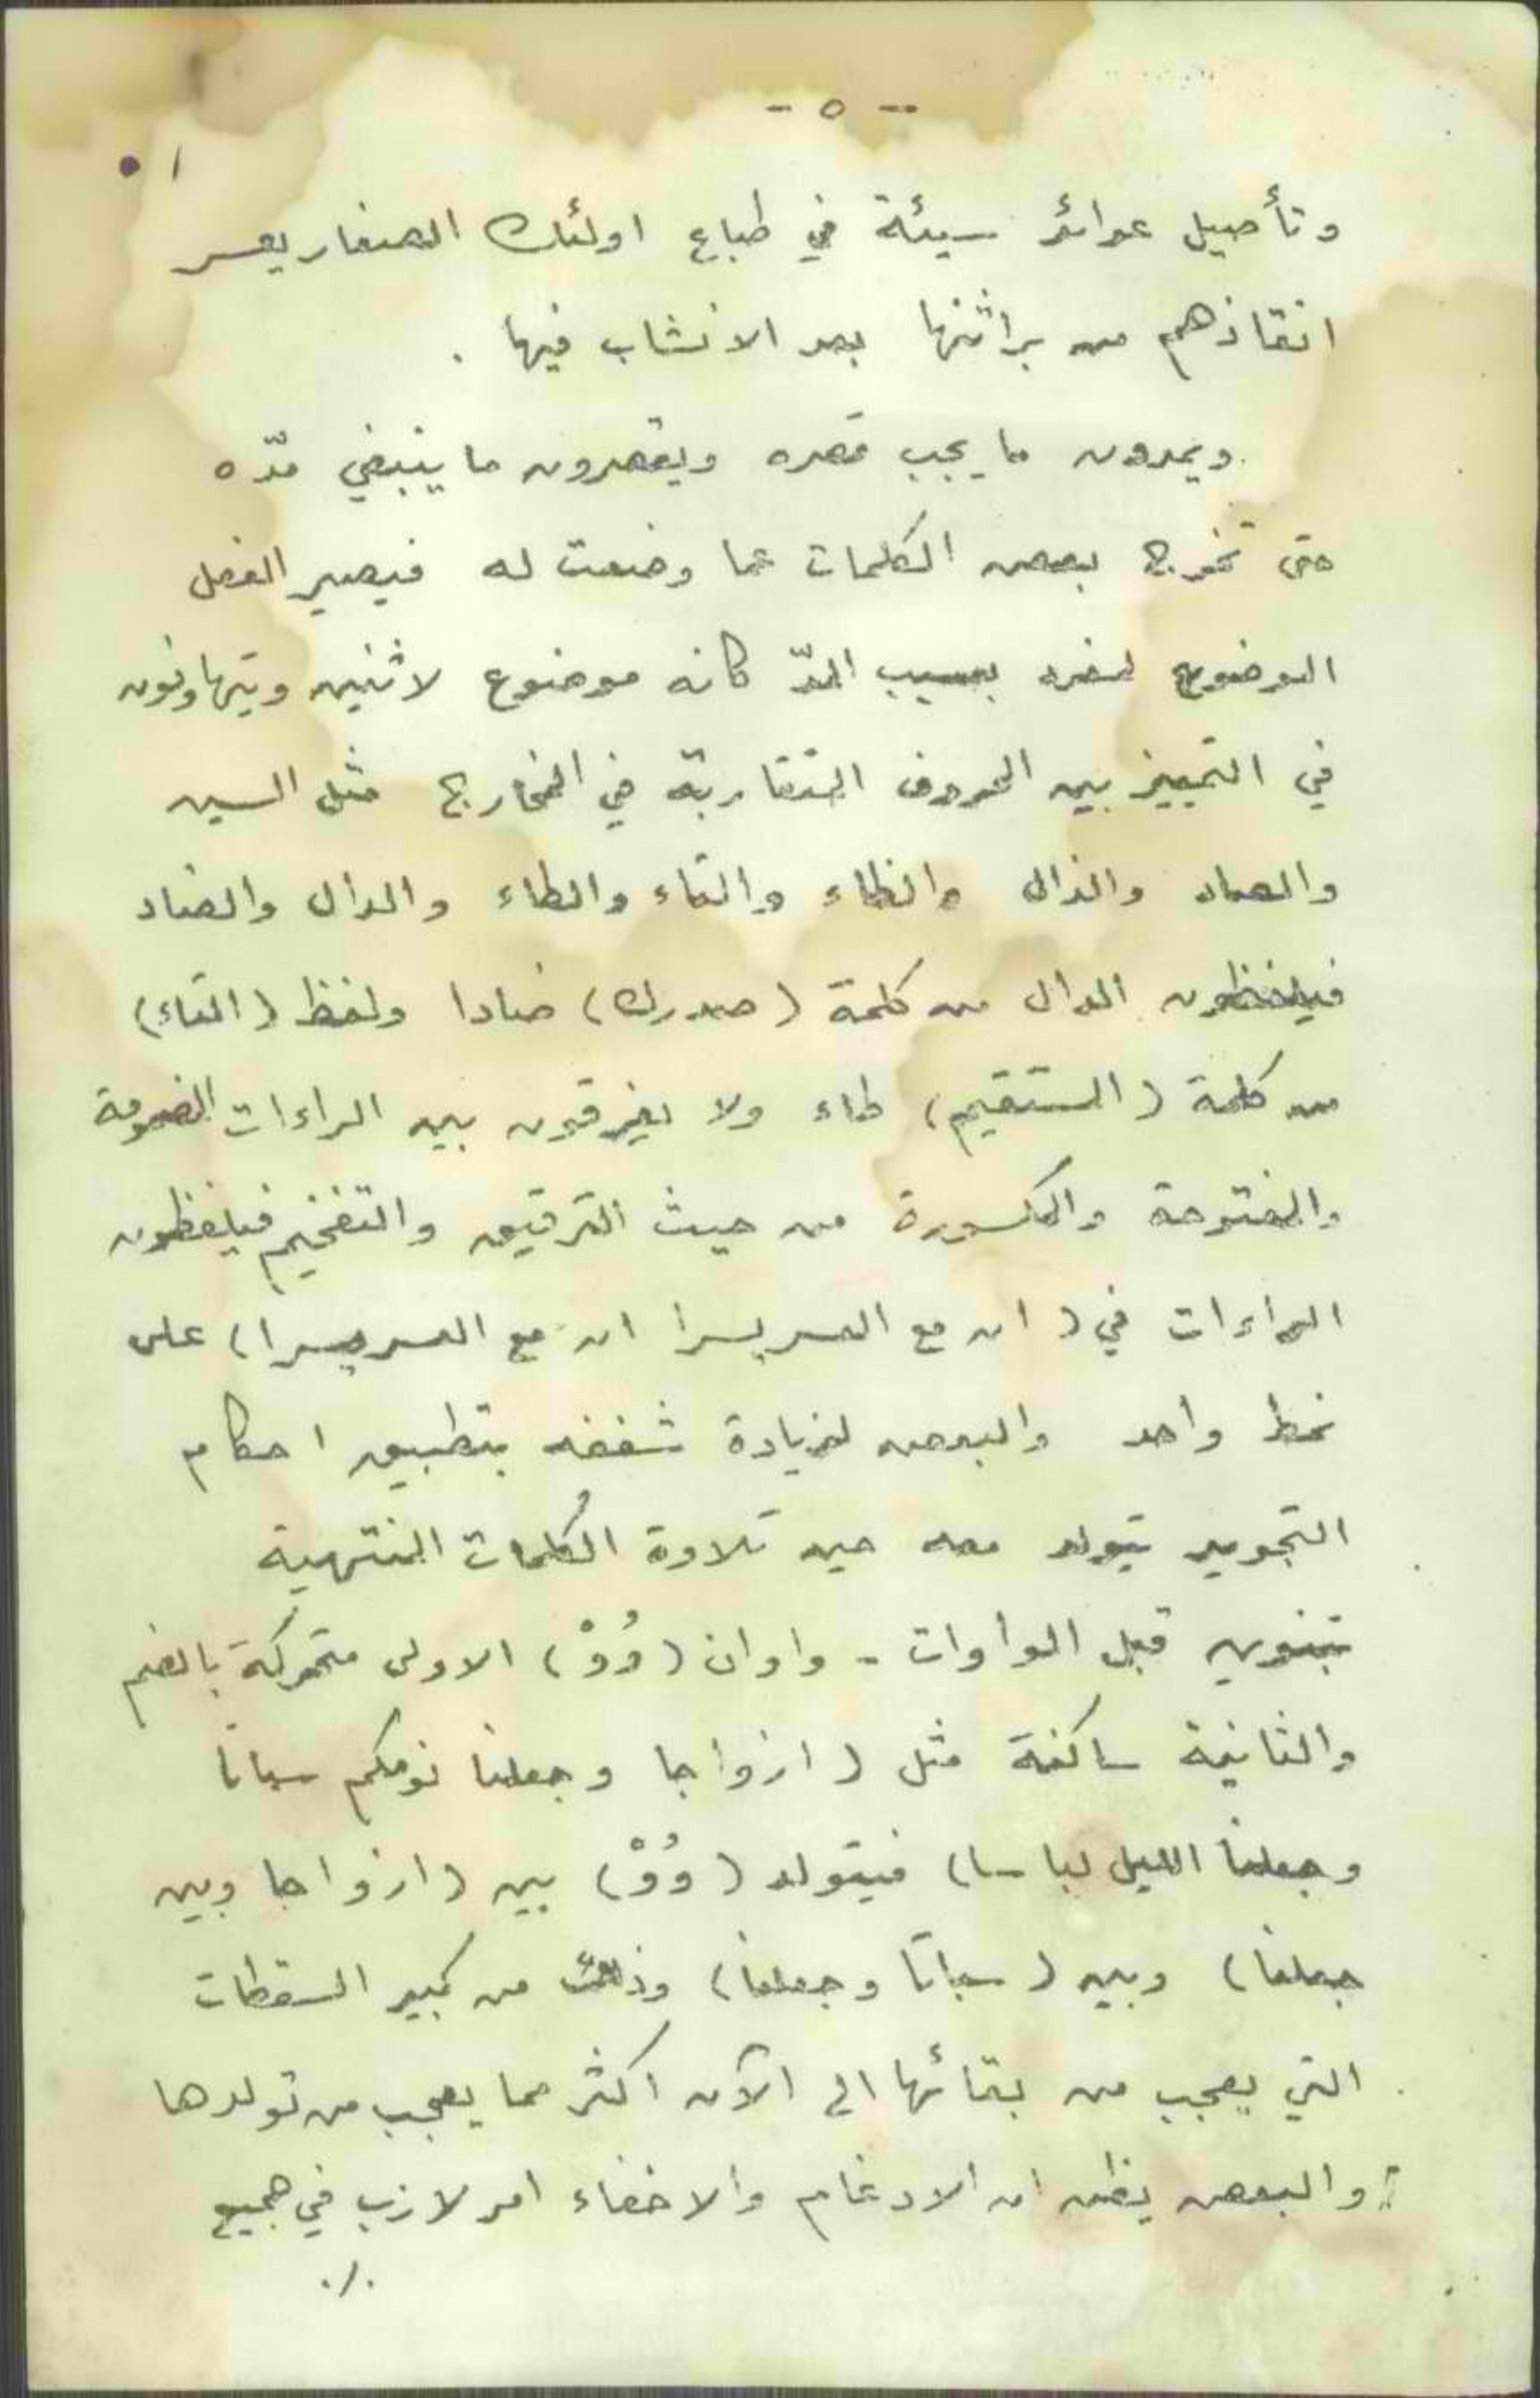 - ٥ -
وتأصيل عوائد سيئة في طباع اولئك الصغار يعسر
انقاذهم من براثنها بعد الانشاب فيها .
ويمدون ما يجب قصره ويقصرون ما ينبغي مدّه
حتى تخرج بعض الكلمات عما وضعت له فيصير الفعل
الموضوع لمفرد بسبب المدّ كانه موضوع لاثنين ويتهاونون
في التمييز بين الحروف المتقاربة في المخارج مثل السين
والصاد والذال والظاء والتاء والطاء والدال والضاد
فيلفظون الدال من كلمة (صدرك) ضادا ولفظ (التاء)
من كلمة (المستقيم) طاء ولا يفرقون بين الراءات المضمومة
والمفتوحة والمكسورة من حيث الترقيق والتفخيم فيلفظون
الراءات في (ان مع العسر يسرا ان مع العسر يسرا) على
نمط واحد والبعض لزيادة شغفه بتطبيق احكام
التجويد يتولد معه حين تلاوة الكلمات المنتهية
بتنوين قبل الواوات - واوان (وُوْ) الاولى متحركة بالضم
والثانية ساكنة مثل (ازواجا وجعلنا نومكم سباتا
وجعلنا الليل لباسا) فيتولد (وُوْ) بين (ازواجا وبين
جعلنا) وبين (سباتا وجعلنا) وذلك من كبير السقطات
التي يعجب من بقائها الى الآن اكثر مما يعجب من تولدها
والبعض يظن ان الادغام والاخفاء امر لازب في جميع
./.